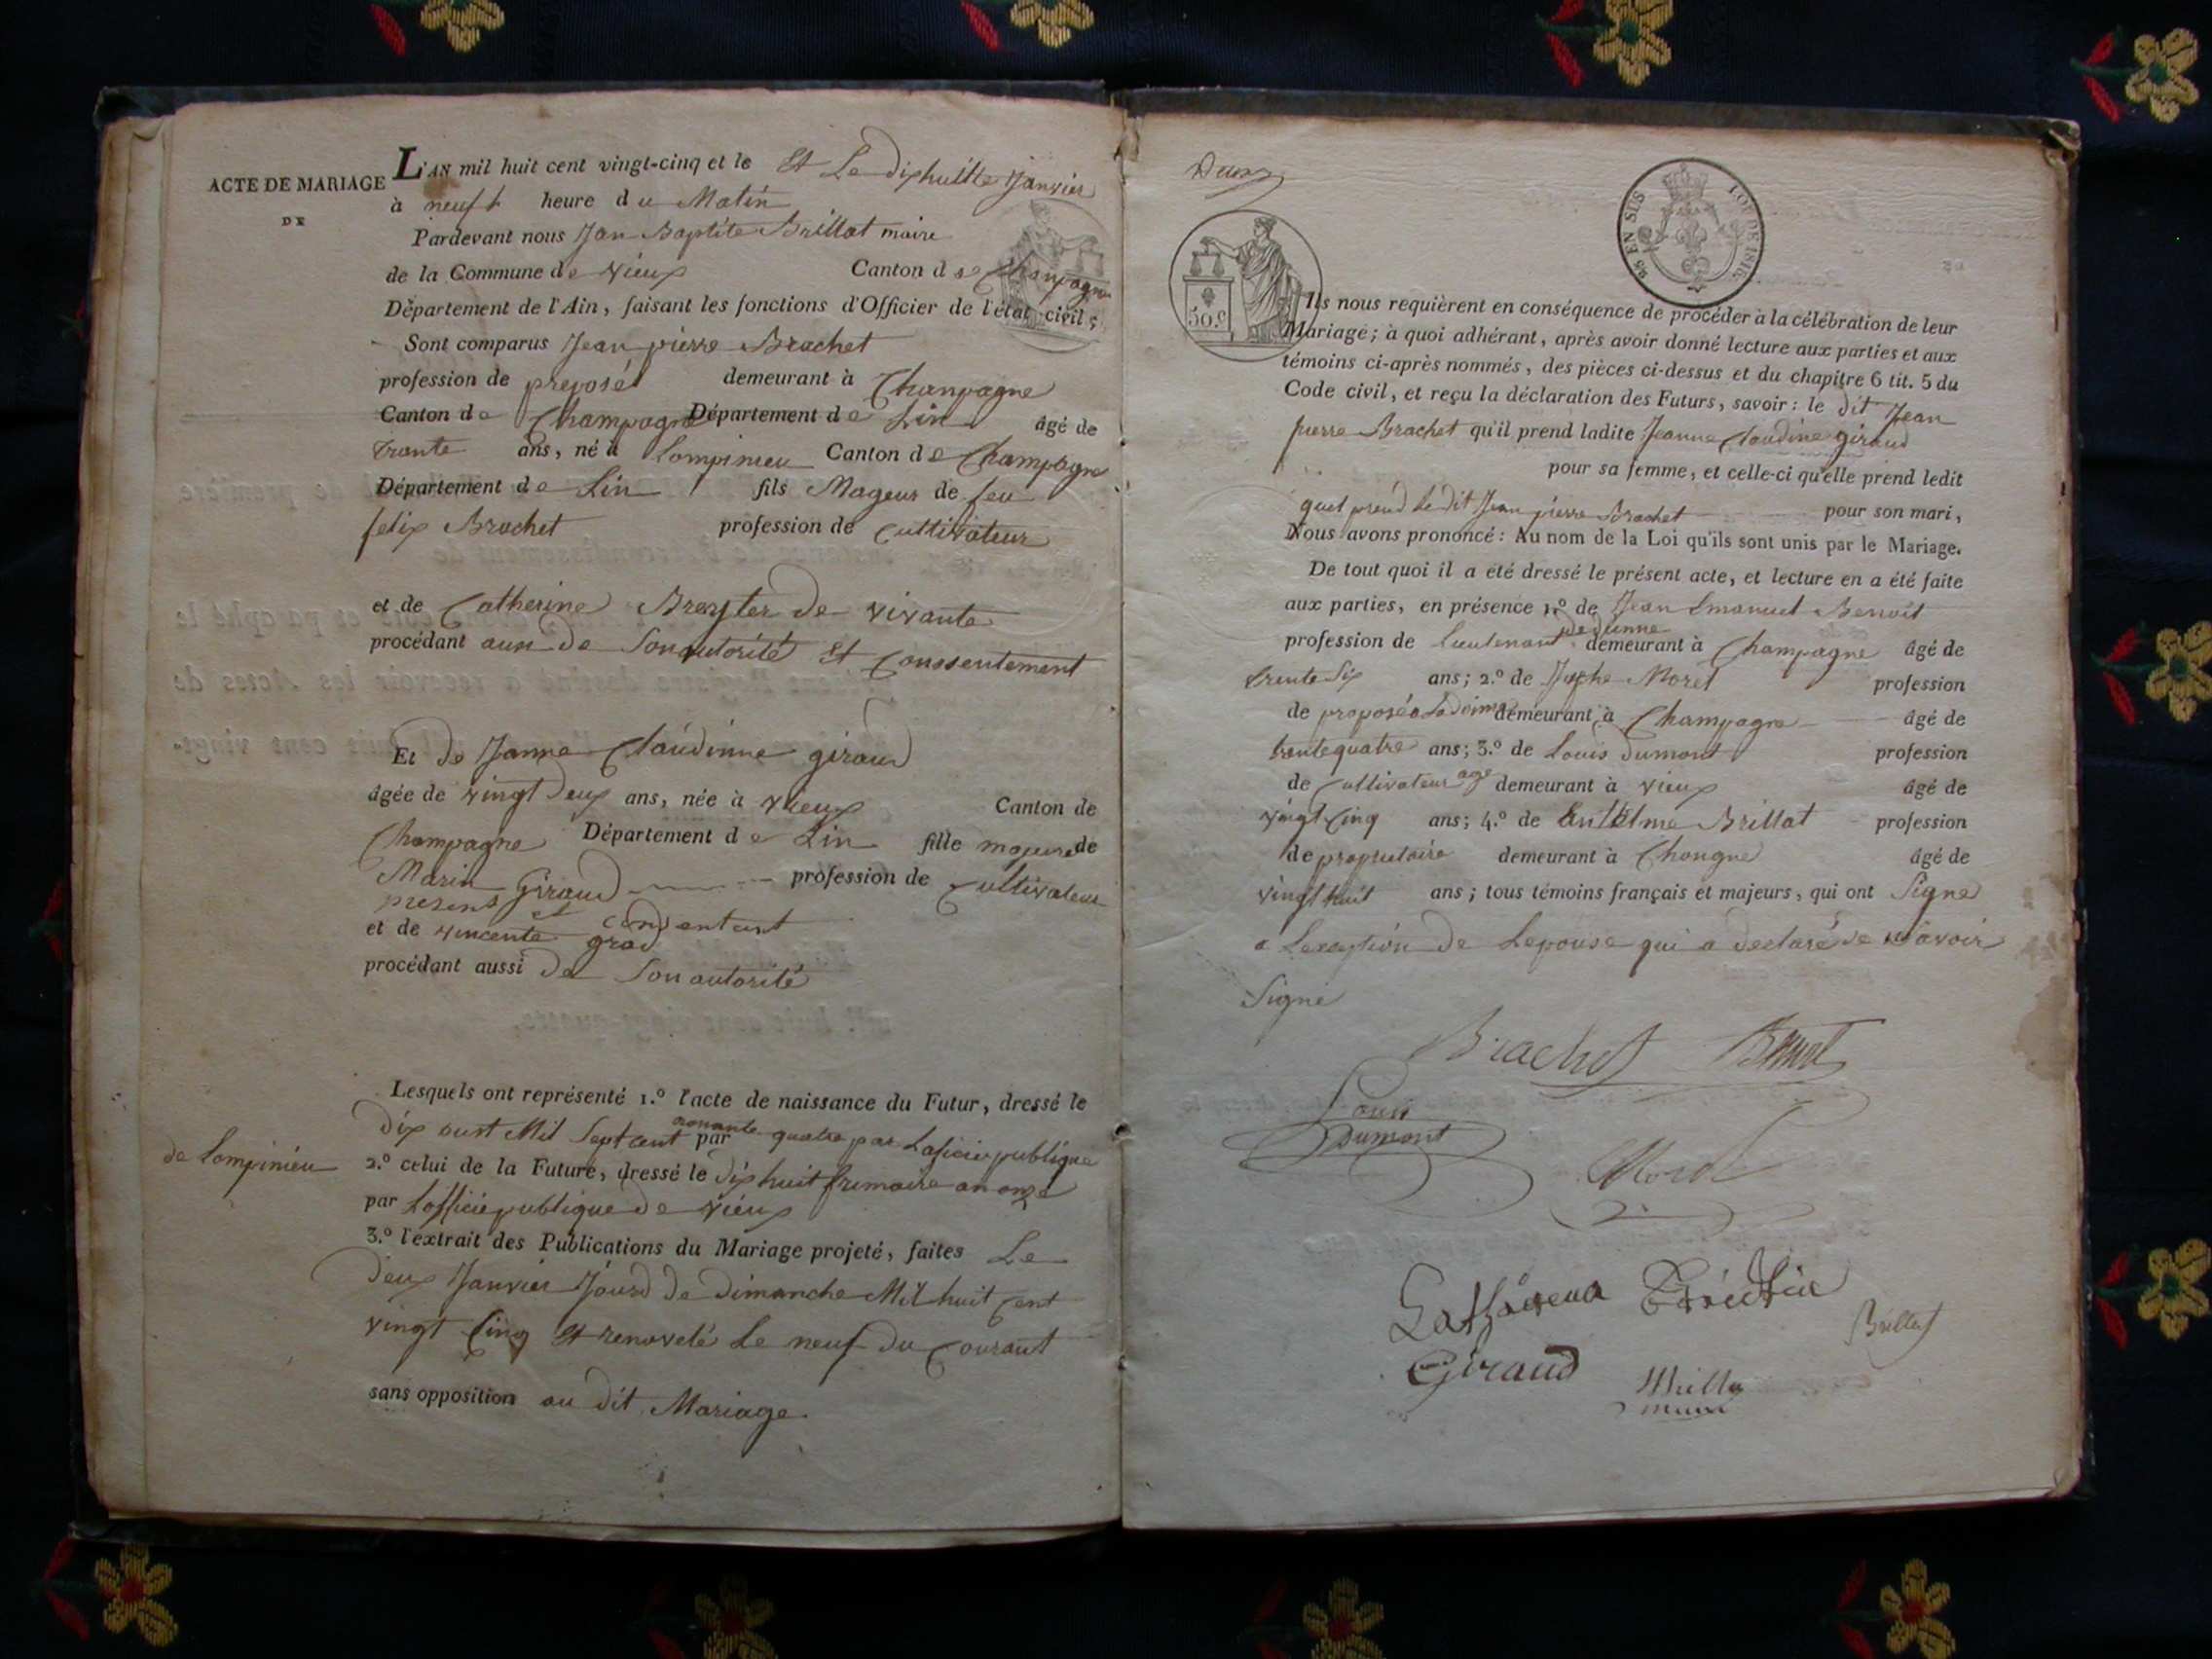 ACTE DE MARIAGE
DE
L'AN mil huit cent vingt-cinq et le Et Le dixhuitte Janvier
à neuf heure du Matin
Pardevant nous Jan Baptite Brillat maire
de la Commune de vieux Canton de Champagne
Département de l'Ain, faisant les fonctions d'Officier de l'état civil;
Sont comparus Jean pierre Brachet
profession de preposé demeurant à Champagne
Canton de Champagne Département de Lin âgé de
trante ans, né à Lompinieu Canton de Champagne
Département de Lin fils Mageur de feu
felix Brachet profession de Cultivateur
et de Catherine de vivante
procédant aux de Son autorité Et Conssentement
Et de Janne Claudinne giraud
âgée de vingt Deux ans, née à vieux Canton de
Champagne Département de Lin fille majeure de
Marin Giraud profession de Cultivateur
presens et consentant
et de vincente grad
procédant aussi de Son autorité
Lesquels ont représenté 1.º l'acte de naissance du Futur, dressé le
Dix oust Mil Sept cent nonante quatre par par Laficie publique
de Lompinieu
2.º celui de la Future, dressé le Dix huit frimaire an onze
par Lofficie publique de vieux
3.º l'extrait des Publications du Mariage projeté, faites Le
Deux Janvier Jourd de Dimanche Mil huit Cent
vingt Cinq Et renovelé Le neuf du Courant
sans opposition au dit Mariage
Deux
25 EN SUS LOI DE 1816.
50.c
Ils nous requièrent en conséquence de procéder à la célébration de leur
Mariage; à quoi adhérant, après avoir donné lecture aux parties et aux
témoins ci-après nommés, des pièces ci-dessus et du chapitre 6 tit. 5 du
Code civil, et reçu la déclaration des Futurs, savoir: le dit Jean
pierre Brachet qu'il prend ladite Jeanne Claudine giraud
pour sa femme, et celle-ci qu'elle prend ledit
quel prend le dit Jean pierre Brachet pour son mari,
Nous avons prononcé: Au nom de la Loi qu'ils sont unis par le Mariage.
De tout quoi il a été dressé le présent acte, et lecture en a été faite
aux parties, en présence 1.º de Jean Emanuel Benoit
profession de Lieutenant demeurant à Champagne âgé de
trente Six ans; 2.º de Morel profession
de preposé demeurant à Champagne âgé de
trentequatre ans; 3.º de Louis Dumont profession
de Cultivateur age demeurant à vieux âgé de
vingt Cinq ans; 4.º de Antelme Brillat profession
de propriétaire demeurant à Chongne âgé de
vingt huit ans; tous témoins français et majeurs, qui ont Signe
a Lexception de Lepouse qui a declaré de ne savoir
Signé
Brachet Benoit
Louis
Dumont
Morel
Brillat
Giraud